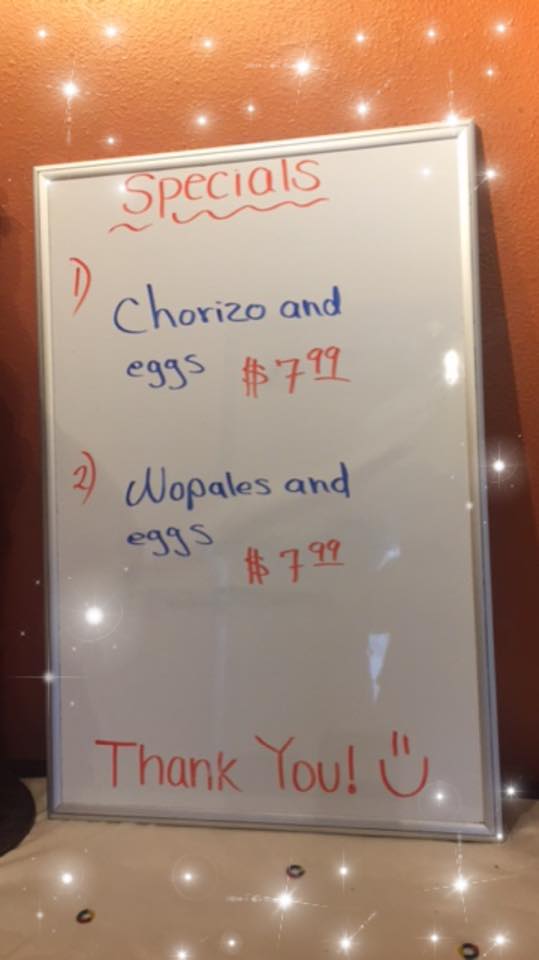 Specials
1)
Chorizo and
eggs $7.99
2) Nopales and
eggs
$7.99
Thank You!